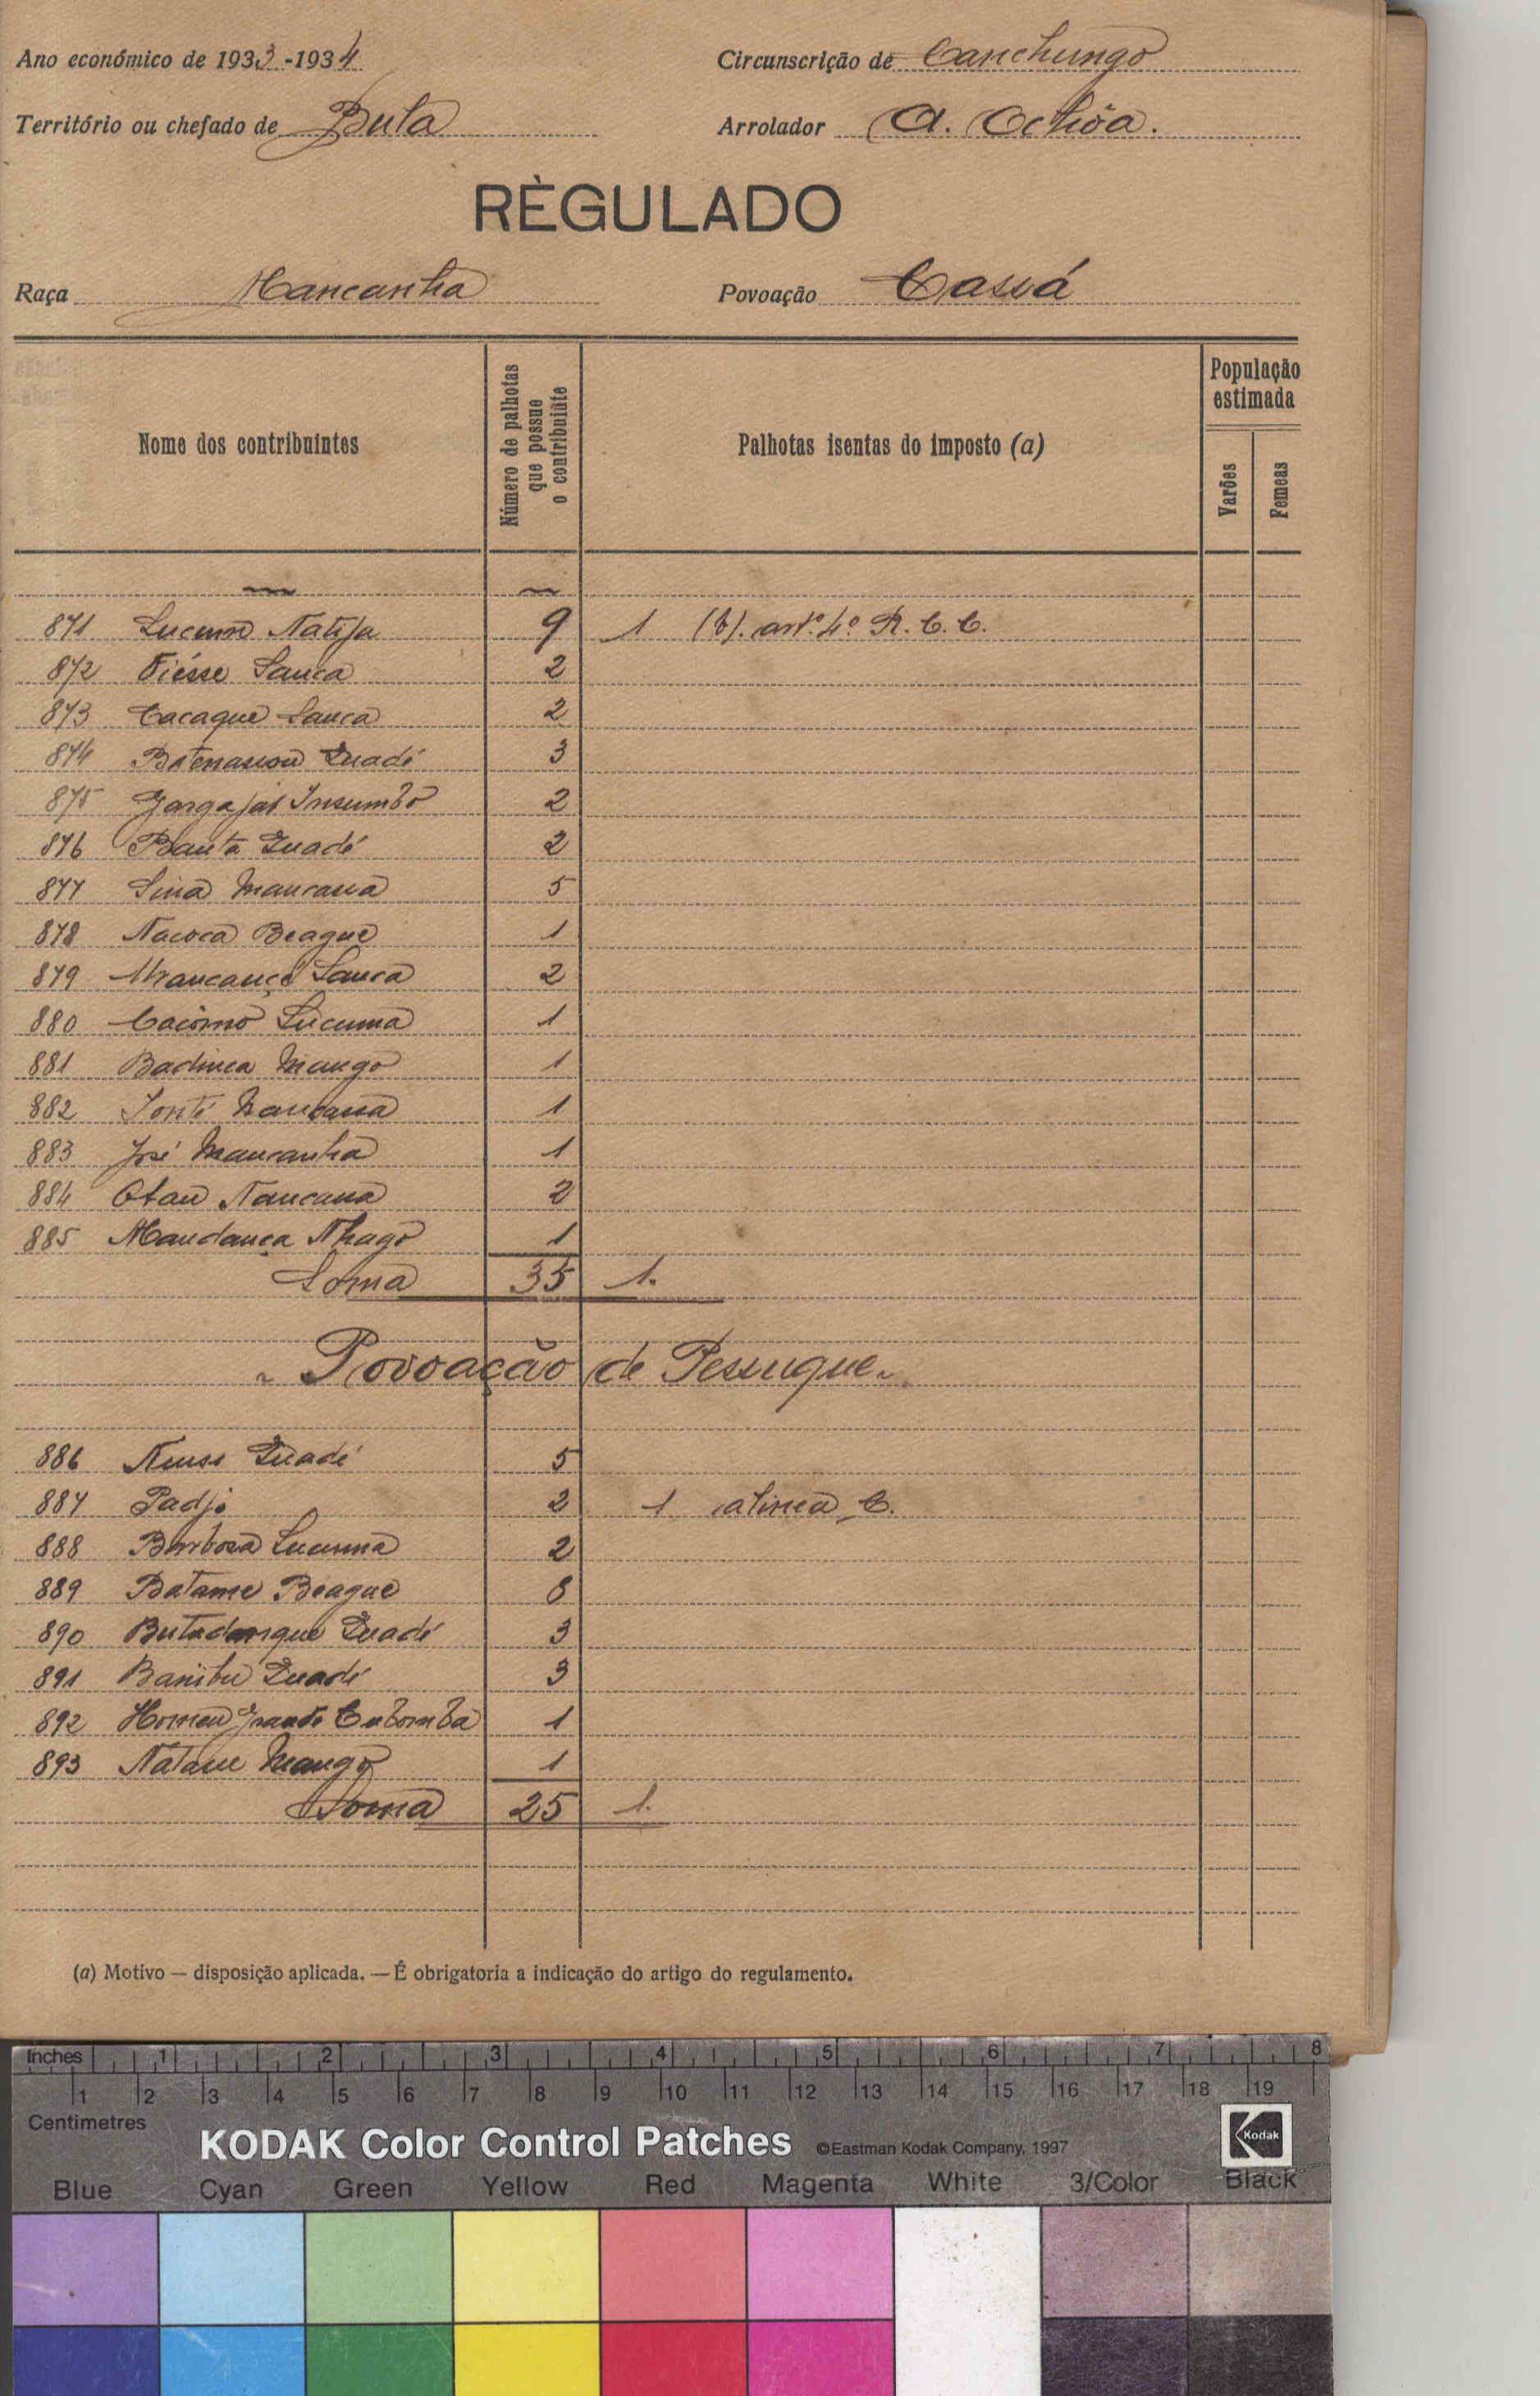 Ano económico de 1933-1934
Circunscrição de Canchungo
Território ou chefado de Bula
Arrolador A. Ochôa.
RÈGULADO
Raça Mancanha
Povoação Cassá
Nome dos contribuintes
Número de palhotas que possue o contribuinte
Palhotas isentas do imposto (a)
População estimada
Varões
Femeas
871 Natija 9 1 (b). artº. 4º R. C. C.
872 Fiésse Sanca 2
873 Cacaque Sanca 2
874 Quadé 3
875 Insumbo 2
876 Banta Quadé 2
877 Sina Mancassa 5
878 Nacoca Beague 1
879 Mancance Sanca 2
880 Lucuma 1
881 Badinca Mango 1
882 Mancassa 1
883 José Mancanha 1
884 Otau 2
885 Mandança Nhago 1
Soma 35 1.
Povoação de Pessugue
886 Quadé 5
887 Padjo 2 1 alinea C.
888 Barbosa Lucuma 2
889 Batame Beague 8
890 Quadé 3
891 Quadé 3
892 Homem Grande 1
893 Mango 1
Soma 25 1.
(a) Motivo — disposição aplicada. — É obrigatoria a indicação do artigo do regulamento.
Inches 1 2 3 4 5 6 7 8
1 2 3 4 5 6 7 8 9 10 11 12 13 14 15 16 17 18 19
Centimetres
KODAK Color Control Patches ©Eastman Kodak Company, 1997 Kodak
Blue Cyan Green Yellow Red Magenta White 3/Color Black